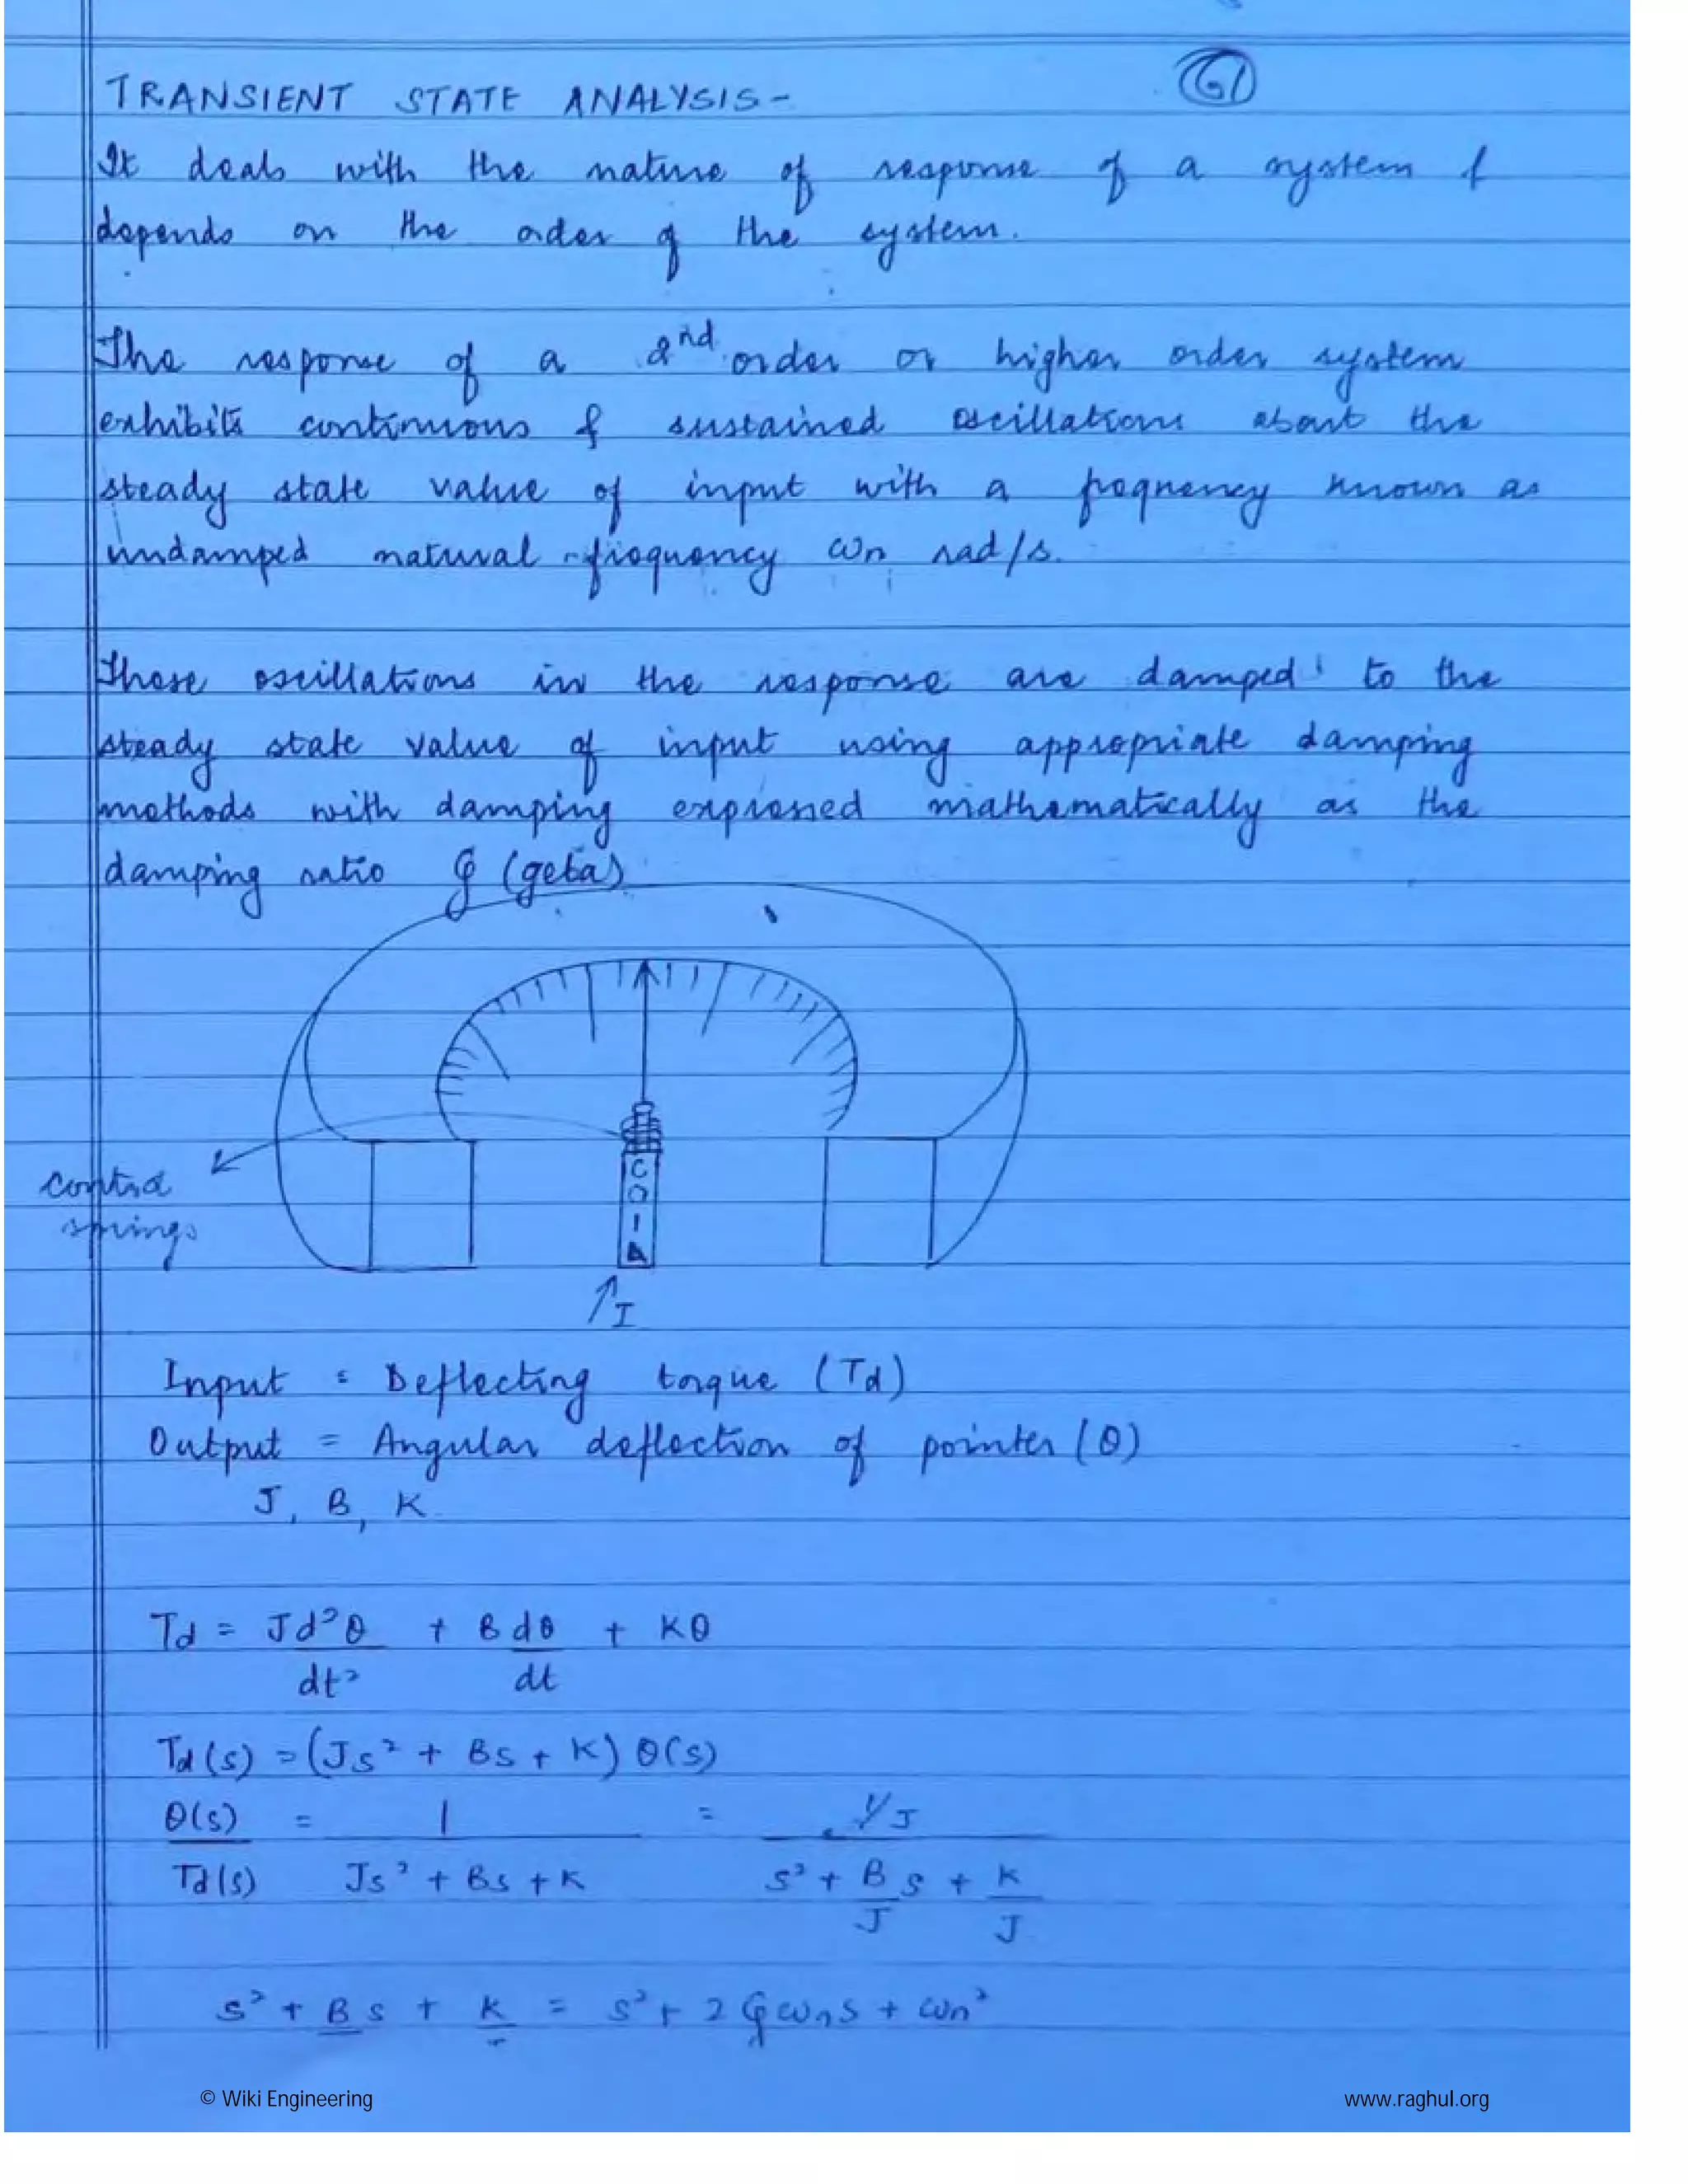 61
TRANSIENT STATE ANALYSIS-
It deals with the nature of response of a system &
depends on the order of the system.
The response of a 2nd order or higher order system
exhibits continuous & sustained oscillations about the
steady state value of input with a frequency known as
undamped natural frequency ωn rad/s.
These oscillations in the response are damped to the
steady state value of input using appropriate damping
methods with damping expressed mathematically as the
damping ratio ξ (zeta)
control
springs
COIL
↑I
Input = Deflecting torque (Td)
Output = Angular deflection of pointer (θ)
J, B, K
Td = J d²θ + B dθ + Kθ
dt² dt
Td(s) = (Js² + Bs + K) θ(s)
θ(s) = 1 = 1/J
Td(s) Js² + Bs + K s² + B s + K
J J
s² + B s + K = s² + 2ξωns + ωn²
© Wiki Engineering
www.raghul.org